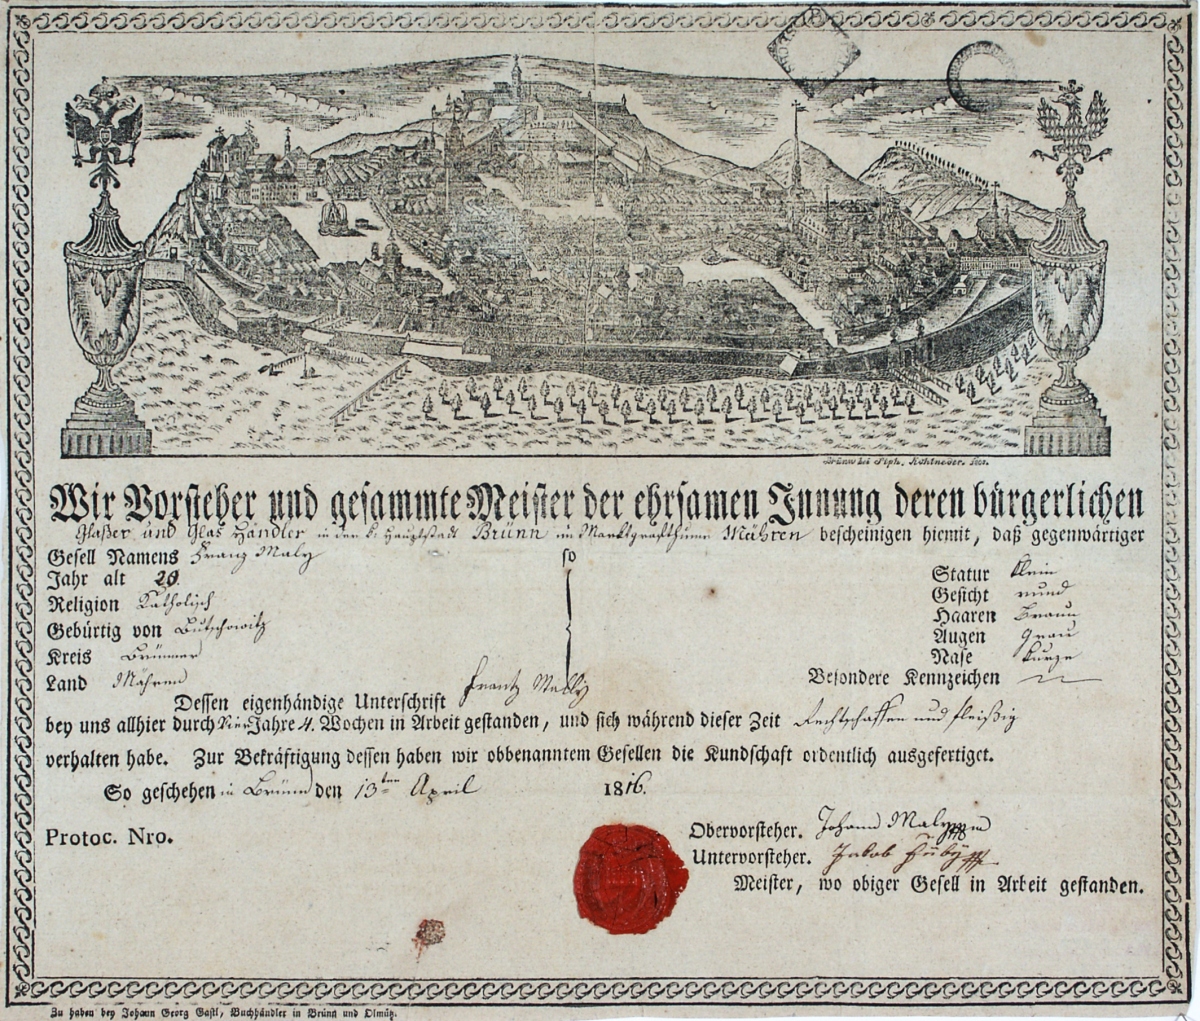 Brünn bei Steph. Kohlneder. sc.
Wir Vorsteher und gesammte Meister der ehrsamen Innung deren bürgerlichen
Glaßer und Glas Händler in der k. Hauptstadt Brünn im Marktgrafthume Mähren bescheinigen hiemit, daß gegenwärtiger
Gesell Namens Franz Maly so
Jahr alt 20
Religion Katholisch
Gebürtig von Butschowitz
Kreis Brünner
Land Mähren
Statur klein
Gesicht rund
Haaren Braun
Augen grau
Nase kurze
Besondere Kennzeichen
Dessen eigenhändige Unterschrift Frantz Mally
bey uns allhier durch Vier Jahre 4. Wochen in Arbeit gestanden, und sich während dieser Zeit Rechtschaffen und fleißig
verhalten habe. Zur Bekräftigung dessen haben wir obbenanntem Gesellen die Kundschaft ordentlich ausgefertiget.
So geschehen in Brünn den 13ten April 1816.
Protoc. Nro.
Obervorsteher. Johann Maly
Untervorsteher. Jakob
Meister, wo obiger Gesell in Arbeit gestanden.
Zu haben bey Johann Georg Gastl, Buchhändler in Brünn und Olmütz.